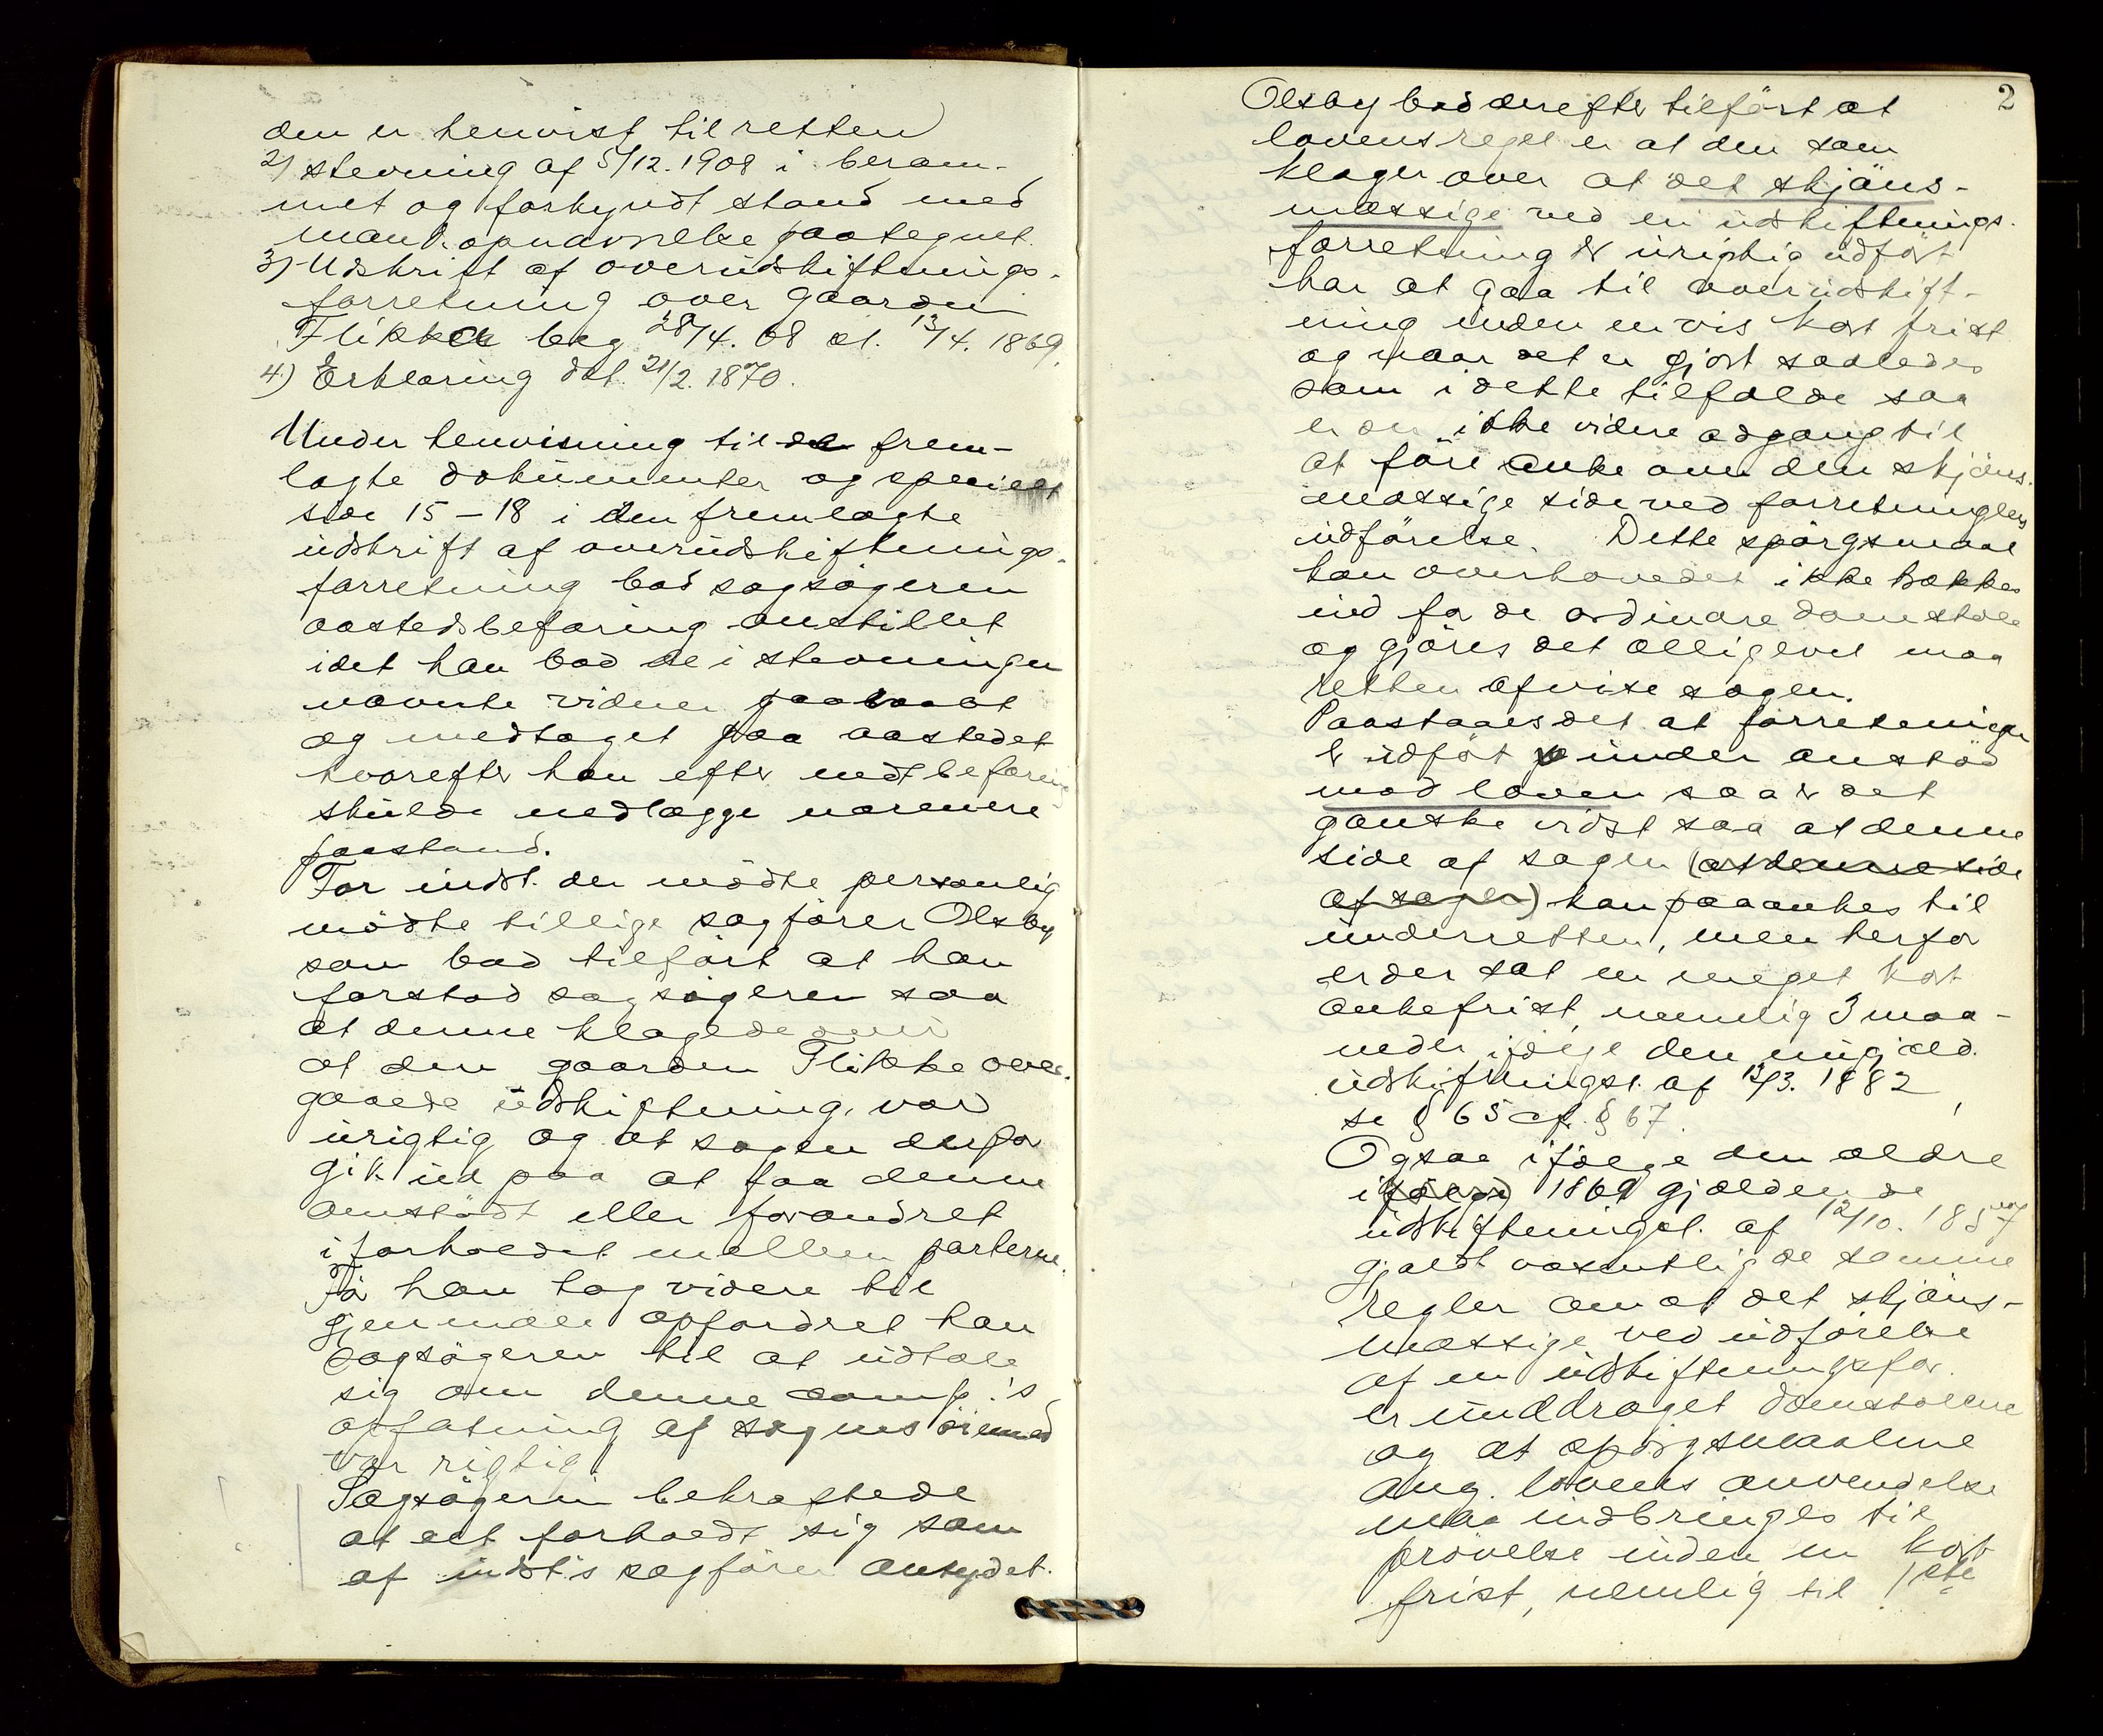 den er henvist til retten
2) stevning af 5/12. 1908 i beram-
met og forkyndt stand med
mank. opnævnelse paategnet.
3) Udskrift af overudskiftnings-
forretning over gaarden
Flikke beg 28/4. 68 sl. 13/4. 1869.
4.) Erklæring dat. 21/2. 1870.
Under henvisning til de frem-
lagte dokumenter og specielt
side 15 – 18 i den fremlagte
udskrift af overudskiftnings-
forretning bad sagsøgeren
aastedsbefaring anstillet
idet han bad de i stevningen
nævnte vidner paaraabt
og medtaget paa aastedet
hvorefter han efter endt befaring
skulde nedlægge nærmere
paastand.
For indst. der mødte personlig
mødte tillige sagfører Olsby
som bad tilført at han
forstod sagsøgeren saa
at denne klagede over
at den gaarden Flikke over-
gaaede udskiftning var
urigtig og at sagen derfor
gik ud paa at faa denne
omstødt eller forandret
i forholdet mellem parterne.
Før han tog videre til
gjenmæle opfordret han
sagsøgeren til at udtale
sig om denne comp.'s
opfatning af sagens øiemed
var rigtig.
Sagsøgeren bekræftede
at alt forholdt sig som
af indst's sagfører antydet.
2
Olsby bad derefter tilført at
lovens regel er at den som
klager over at det skjøns-
mæssige ved en udskiftnings-
forretning er urigtig udført
har at gaa til overudskift-
ning inden en vis kort frist
og naar det er gjort saaledes
som i dette tilfælde saa
er der ikke videre adgang til
at føre anke over den skjøns-
mæssige side ved forretningens
udførelse. Dette spørgsmaal
kan overhovedet ikke trækkes
ind for de ordinære domstole
og gjøres det alligevel maa
retten afvise sagen.
Paastaaes det at forretningen
er udført under anstød
mod loven saa er det
ganske vist saa at denne
side af sagen (at denne side
af sagen) kan paaankes til
underretten, men herfor
er der sat en meget kort
ankefrist, nemlig 3 maa-
neder ifølge den nugjæld.
udskiftningsl. af 13/3. 1882,
se § 65 cfr. § 67.
Ogsaa ifølge den ældre
i (følge) 1869 gjældende
udskiftningsl. af 12/10. 1857
gjaldt væsentlig de samme
regler om at det skjøns-
mæssige ved udførelse
af en udskiftningsfor.
er unddraget domstolene
og at spørgsmaalene
ang. lovens anvendelse
maa indbringes til
prøvelse inden en kort
frist, nemlig til 1ste